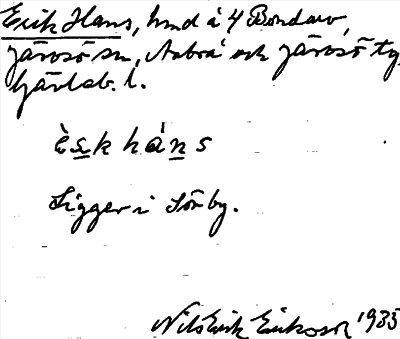 Erik Hans, hmd å 4 Bondarv,
Järvsö sn, Arbrå och Järvsö tg
Gävleb. l.
èsk háns
Ligger i Sörby.
Nils Erik Eriksson 1935